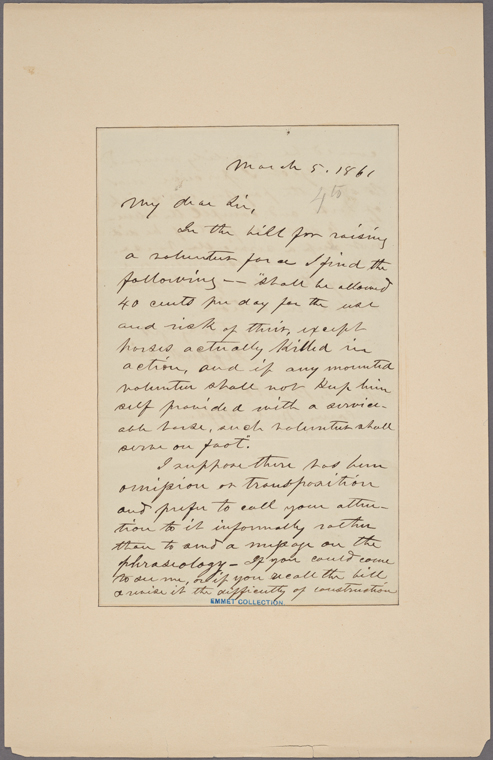 March 5. 1861
4th
My dear Sir,
In the bill for raising
a volunteer force I find the
following -- "shall be allowed
40 cents per day for the use
and risk of their, except
horses actually killed in
action, and if any mounted
volunteer shall not keep him
self provided with a service-
able horse, such volunteer shall
serve on foot".
I suppose there has been
omission or transposition
and prefer to call your atten-
tion to it informally rather
than to send a message on the
phraseology - If you could come
to see me, or if you recall the bill
& revise it the difficulty of construction
EMMET COLLECTION.